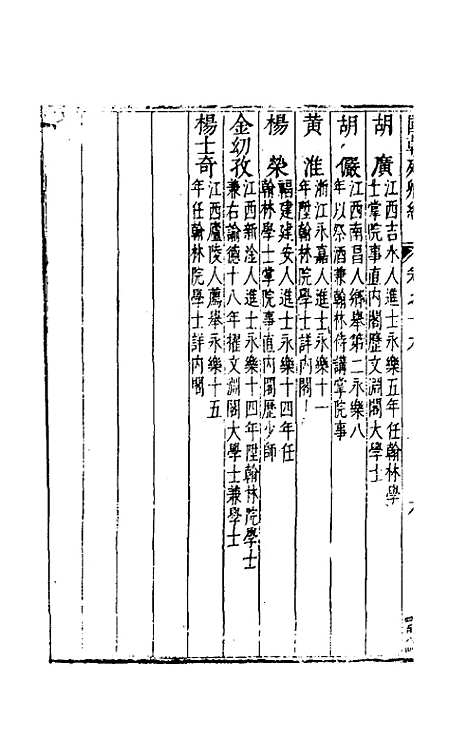 胡廣
江西吉水人進士永樂五年任翰林學
士掌院事直內閣歷文淵閣大學士
胡儼
江西南昌人鄉舉第二永樂八
年以祭酒兼翰林侍講掌院事
黃淮
浙江永嘉人進士永樂十一
年陞翰林院學士詳內閣
楊榮
福建建安人進士永樂十四年任
翰林學士掌院事直內閣歷少師
金幼孜
江西新淦人進士永樂十四年陞翰林院學士
兼右諭德十八年擢文淵閣大學士兼學士
楊士奇
江西廬陵人薦舉永樂十五
年任翰林院學士詳內閣